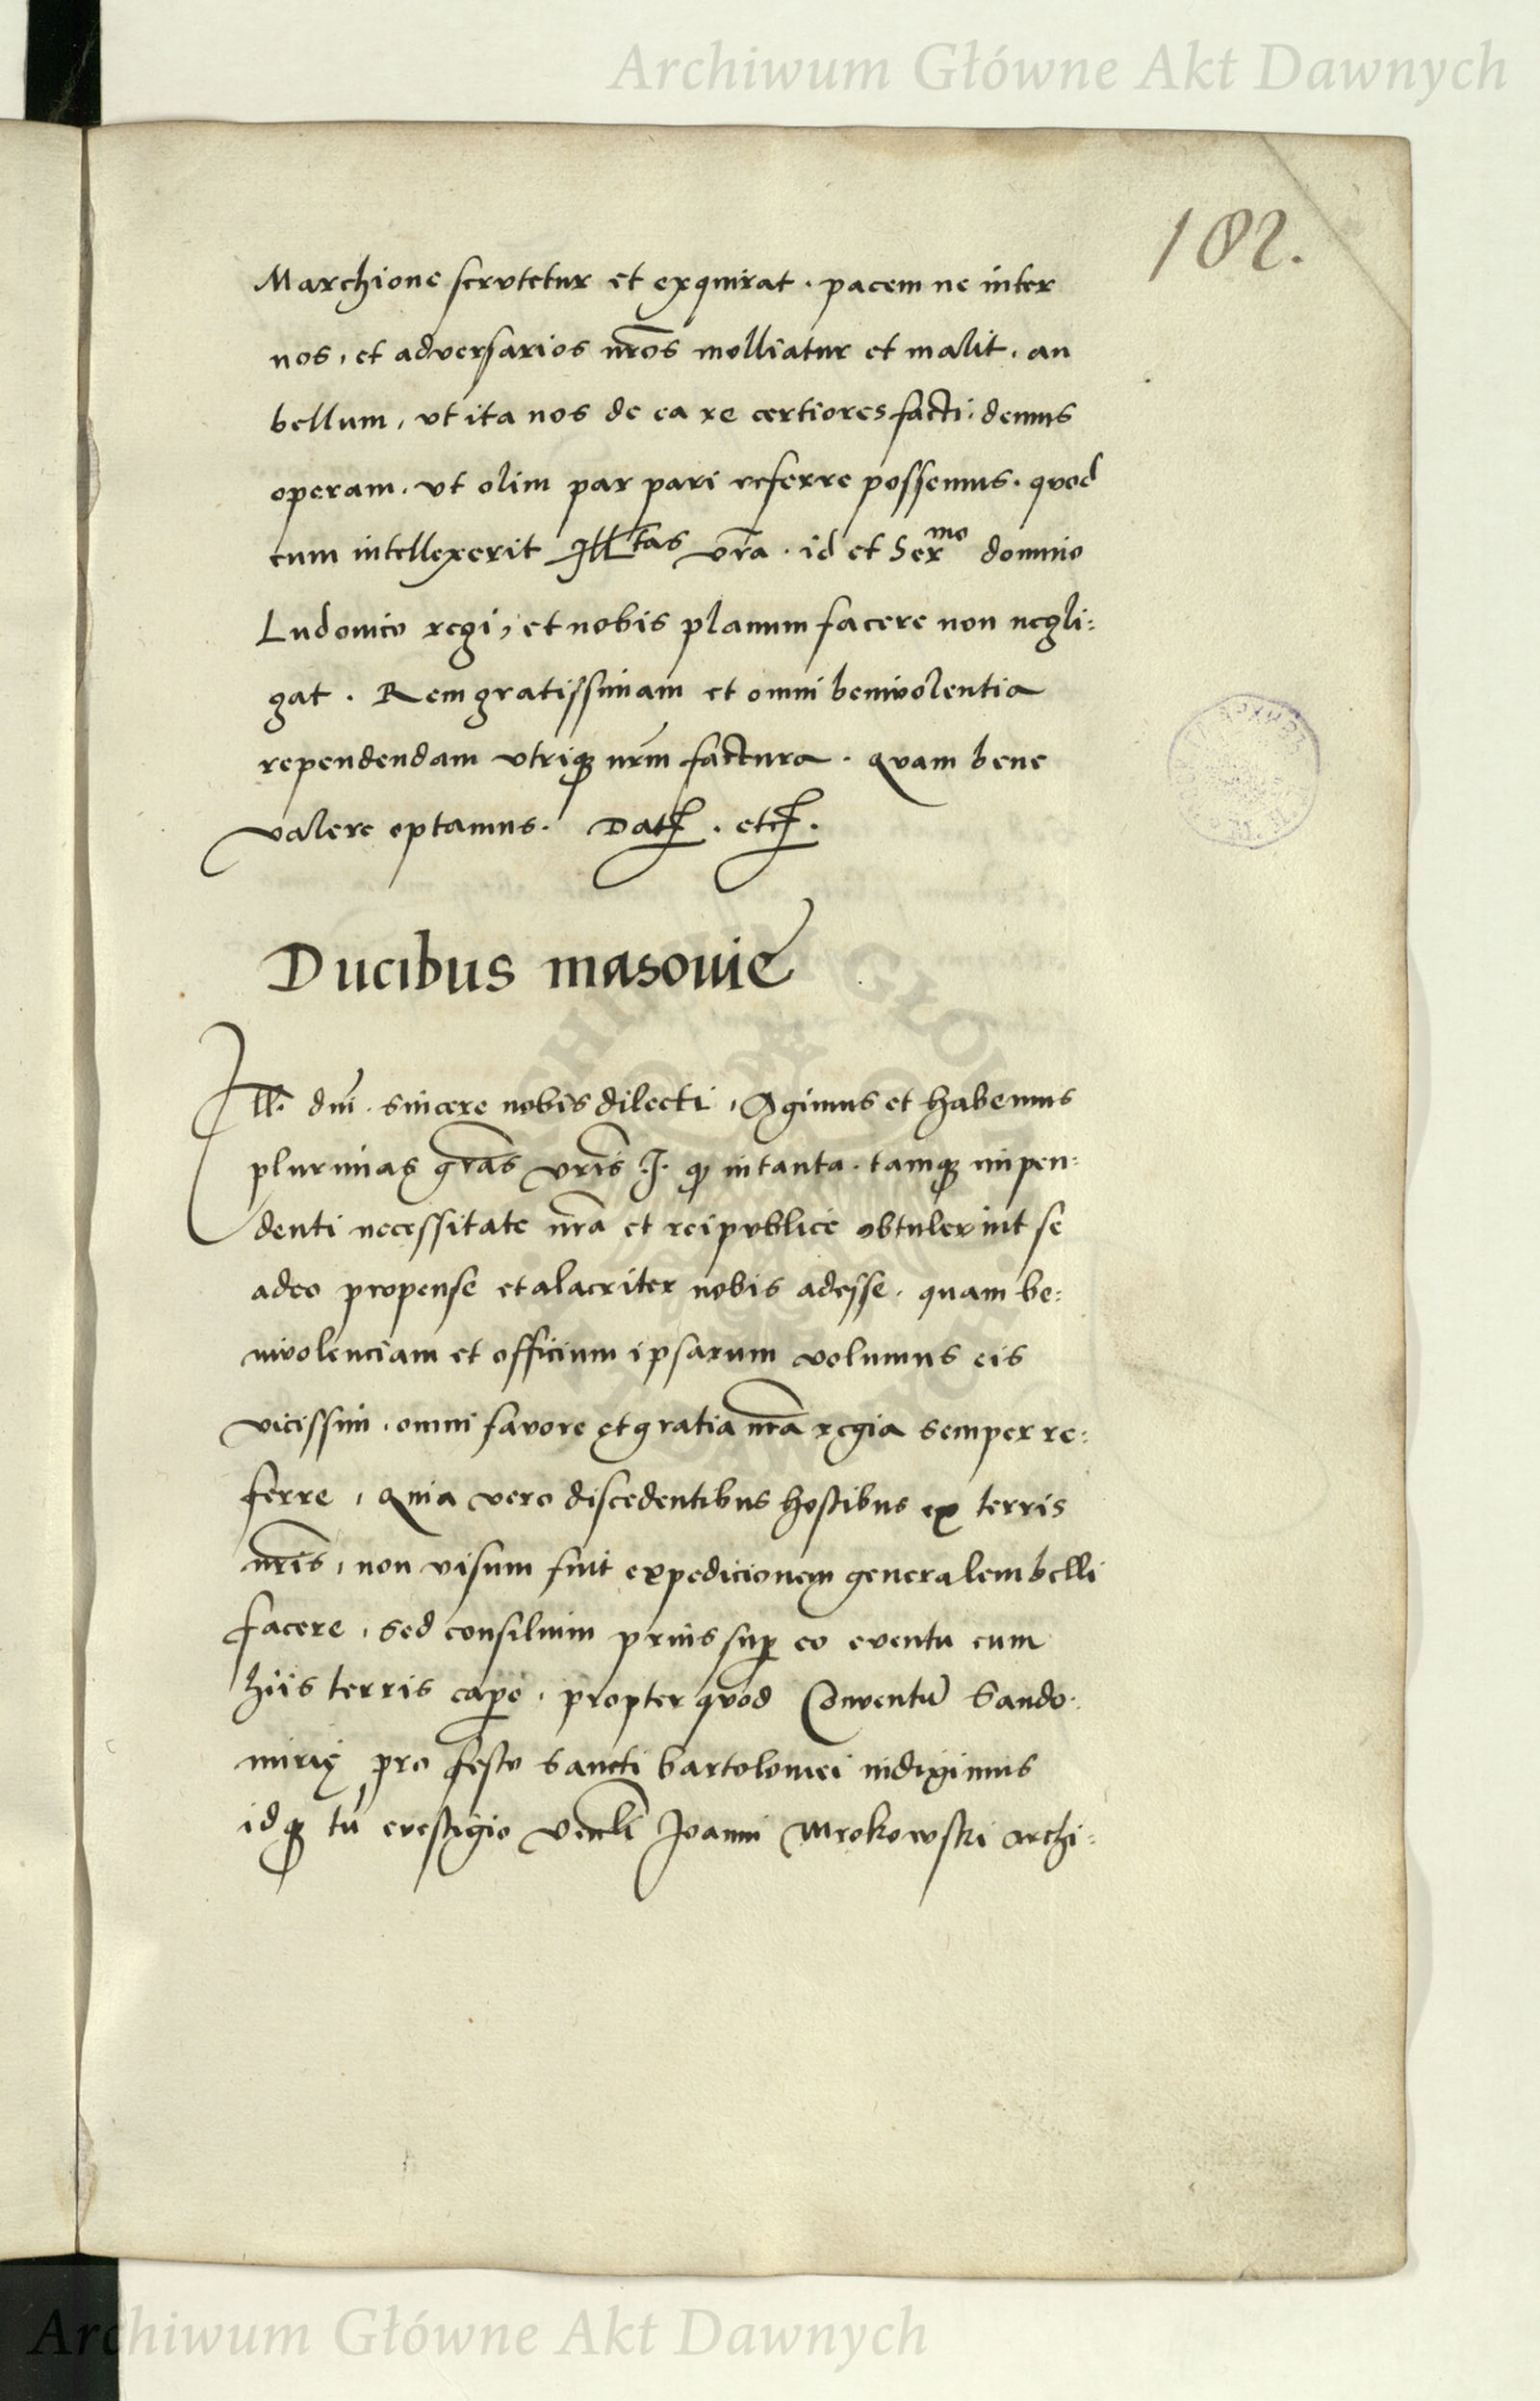 Archiwum Główne Akt Dawnych
182.
Marchione scrvtetur et exquirat . pacem ne inter
nos, et adversarios nr̃os molliatur et malit . an
bellum, vt ita nos de ea re certiores facti. demus
operam. vt olim par pari referre possemus. quod
cum intellexerit Ill^tas vr̃a . id et Ser^mo domino
Ludovico regi, et nobis planum facere non negli:
gat . Rem gratissimam et omni benivolentia
rependendam vtriqꝫ nr̃m factura . quam bene
valere optamus. Datꝭ . etcꝭ .
Ducibus masouie
Ill. dni͂ . sincere nobis dilecti , Agimus et habemus
plurimas gr̃as vr̃is .I. qꝫ in tanta . tamqꝫ impen:
denti necessitate nr̃a et reipvblice obtulerint se
adeo propense et alacriter nobis adesse . quam be:
nivolenciam et officium ipsarum volumus eis
vicissim . omni favore et gratia nr̃a regia semper re:
ferre , quia vero discedentibus hostibus ex terris
nr̃is , non visum fuit expedicionem generalem belli
facere , sed consilium prius suꝑ eo eventu cum
hiis terris caꝑe , propter qvod Conventũ Sando:
mirię pro festo Sancti bartolomei indiximus
idqꝫ tũ evestigio Ven̄li Joanni Mrokowski archi:
Archiwum Główne Akt Dawnych